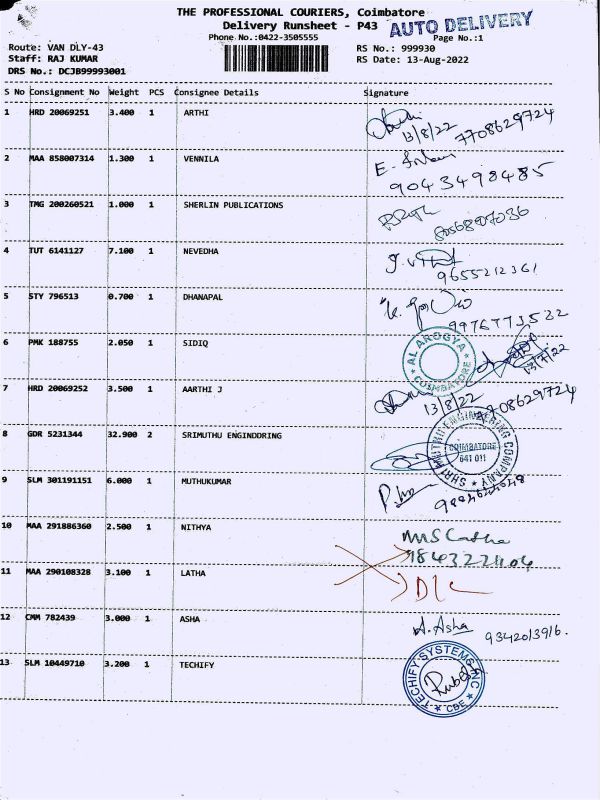 THE PROFESSIONAL COURIERS, Coimbatore
Delivery Runsheet - P43
AUTO DELIVERY
Phone No.:0422-3505555
Page No.:1
Route: VAN DLY-43
RS No.: 999930
Staff: RAJ KUMAR
RS Date: 13-Aug-2022
DRS No.: DCJB99993001
S No Consignment No Weight PCS Consignee Details Signature
1 HRD 20069251 3.400 1 ARTHI
13/8/22 7708629724
2 MAA 858007314 1.300 1 VENNILA
9043498485
3 TMG 200260521 1.000 1 SHERLIN PUBLICATIONS
4 TUT 6141127 7.100 1 NEVEDHA
9655212361
5 STY 796513 0.700 1 DHANAPAL
9976773522
6 PMK 188755 2.050 1 SIDIQ
AL AROGYA
COIMBATORE
7 HRD 20069252 3.500 1 AARTHI J
13/8/22 7708629724
8 GDR 5231344 32.900 2 SRIMUTHU ENGINDDRING
SHRI MUTHU ENGINEERING COMPANY
COIMBATORE
641 011
9 SLM 301191151 6.000 1 MUTHUKUMAR
10 MAA 291886360 2.500 1 NITHYA
11 MAA 290108328 3.100 1 LATHA
D/L
12 CMM 782439 3.000 1 ASHA
A. Asha
13 SLM 10449710 3.200 1 TECHIFY
TECHIFY SYSTEMS INC
CBE